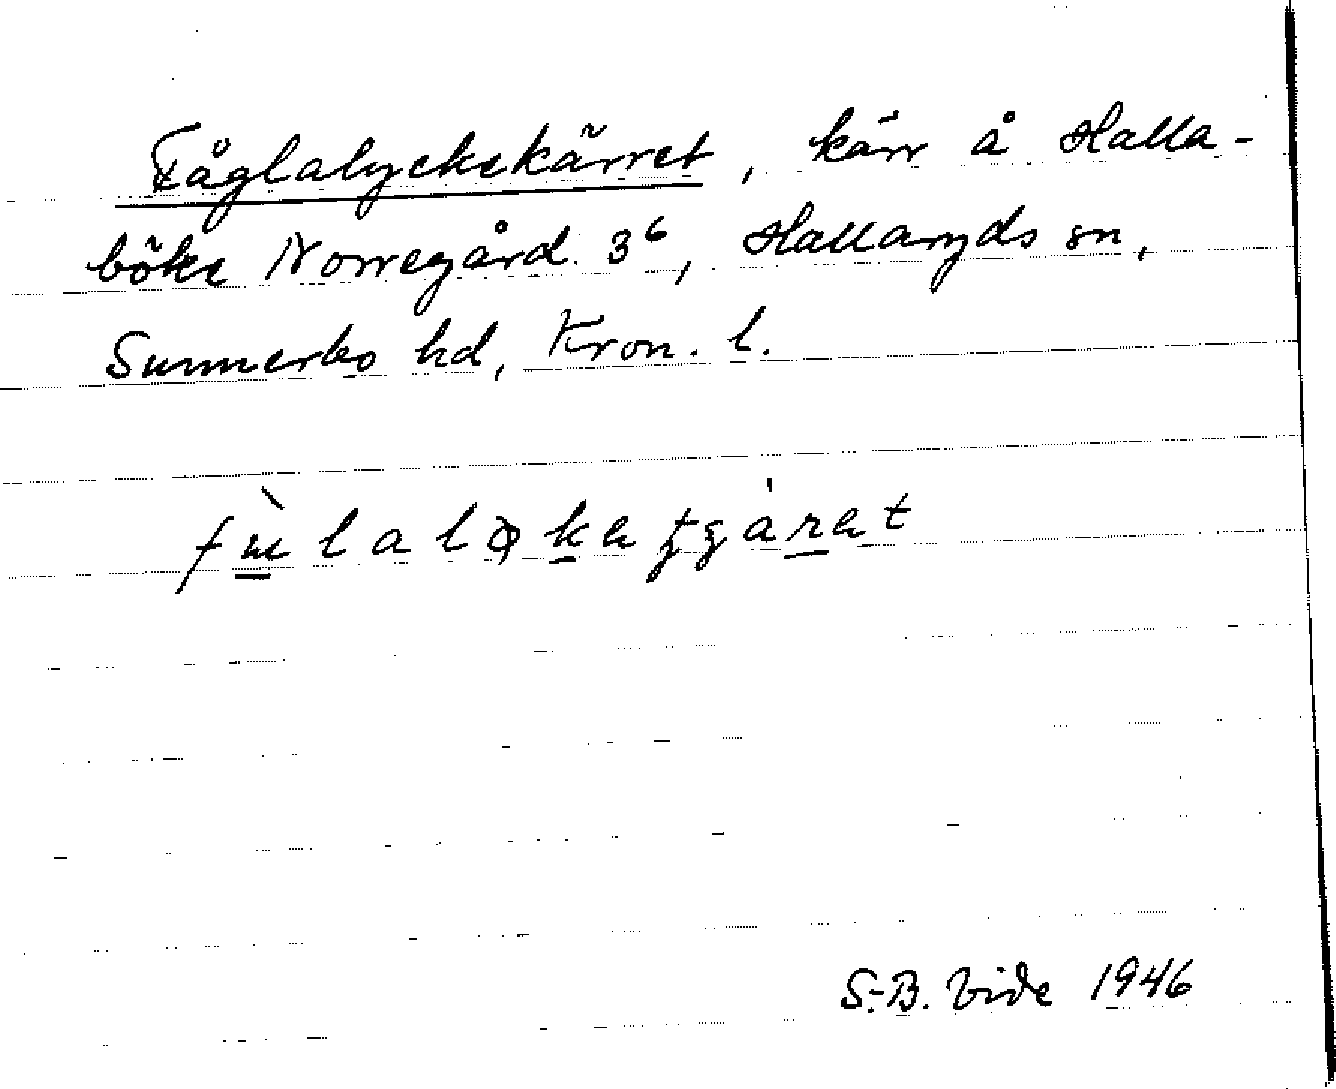 Fåglalyckekärret, kärr å Halla-
böke Norregård 3⁶, Hallaryds sn,
Sunnerbo hd, Kron. l.
S.-B. Vide 1946